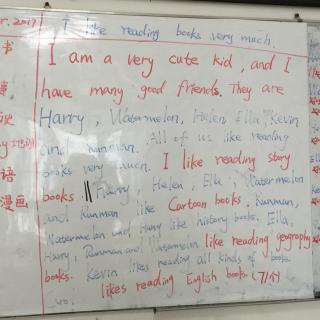 r. 2017
I like reading books very much.
书
I am a very cute kid, and I
have many good friends. They are
Harry, Watermelon, Helen, Ella, Kevin
and Runman. All of us like reading
books very much. I like reading story
books. || Harry, Helen, Ella, Watermelon
and Runman like Cartoon books. Runman,
Watermelon and Harry like history books. Ella,
Harry, Runman and Watermelon like reading geography
books. Kevin likes reading all kinds of books
likes reading English books.
事
语
漫画